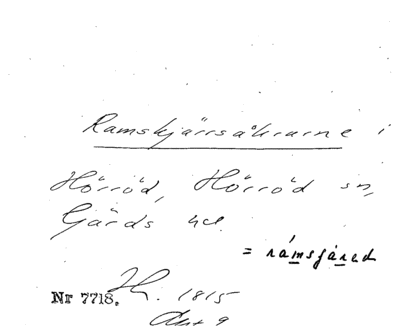 Ramskjärrsåkrarne i
Hörröd, Hörröd sn,
Gärds hd.
= ramsjared
Nr 7718. H. 1815
Akt 9